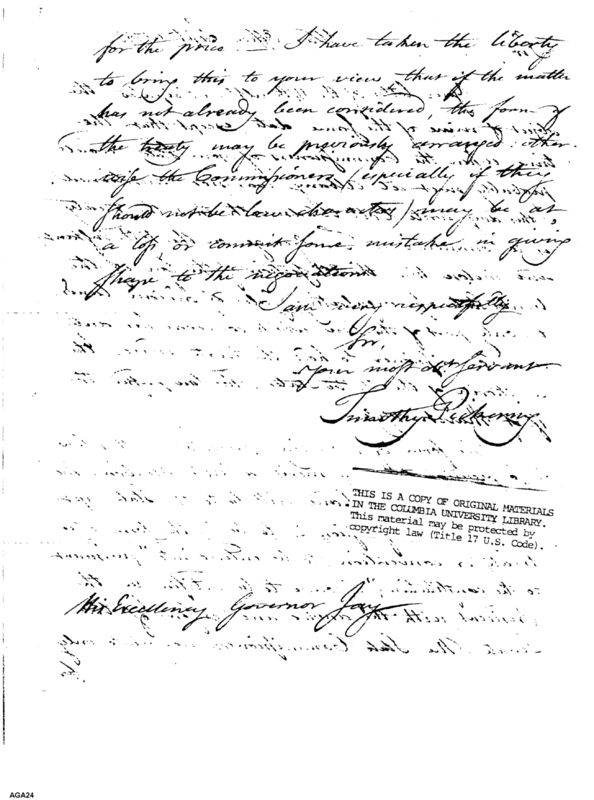 for the price. I have taken the liberty
to bring this to your view, that if the matter
has not already been considered, the form of
the treaty may be previously arranged: other-
wise the Commissioners (especially if they
should not be law characters) may be at
a loss, or commit some mistake in giving
shape to the negociation.
I am very respectfully
Sir,
your most obt servant
Timothy Pickering
THIS IS A COPY OF ORIGINAL MATERIALS
IN THE COLUMBIA UNIVERSITY LIBRARY.
This material may be protected by
copyright law (Title 17 U.S. Code).
His Excellency Governor Jay
AGA24